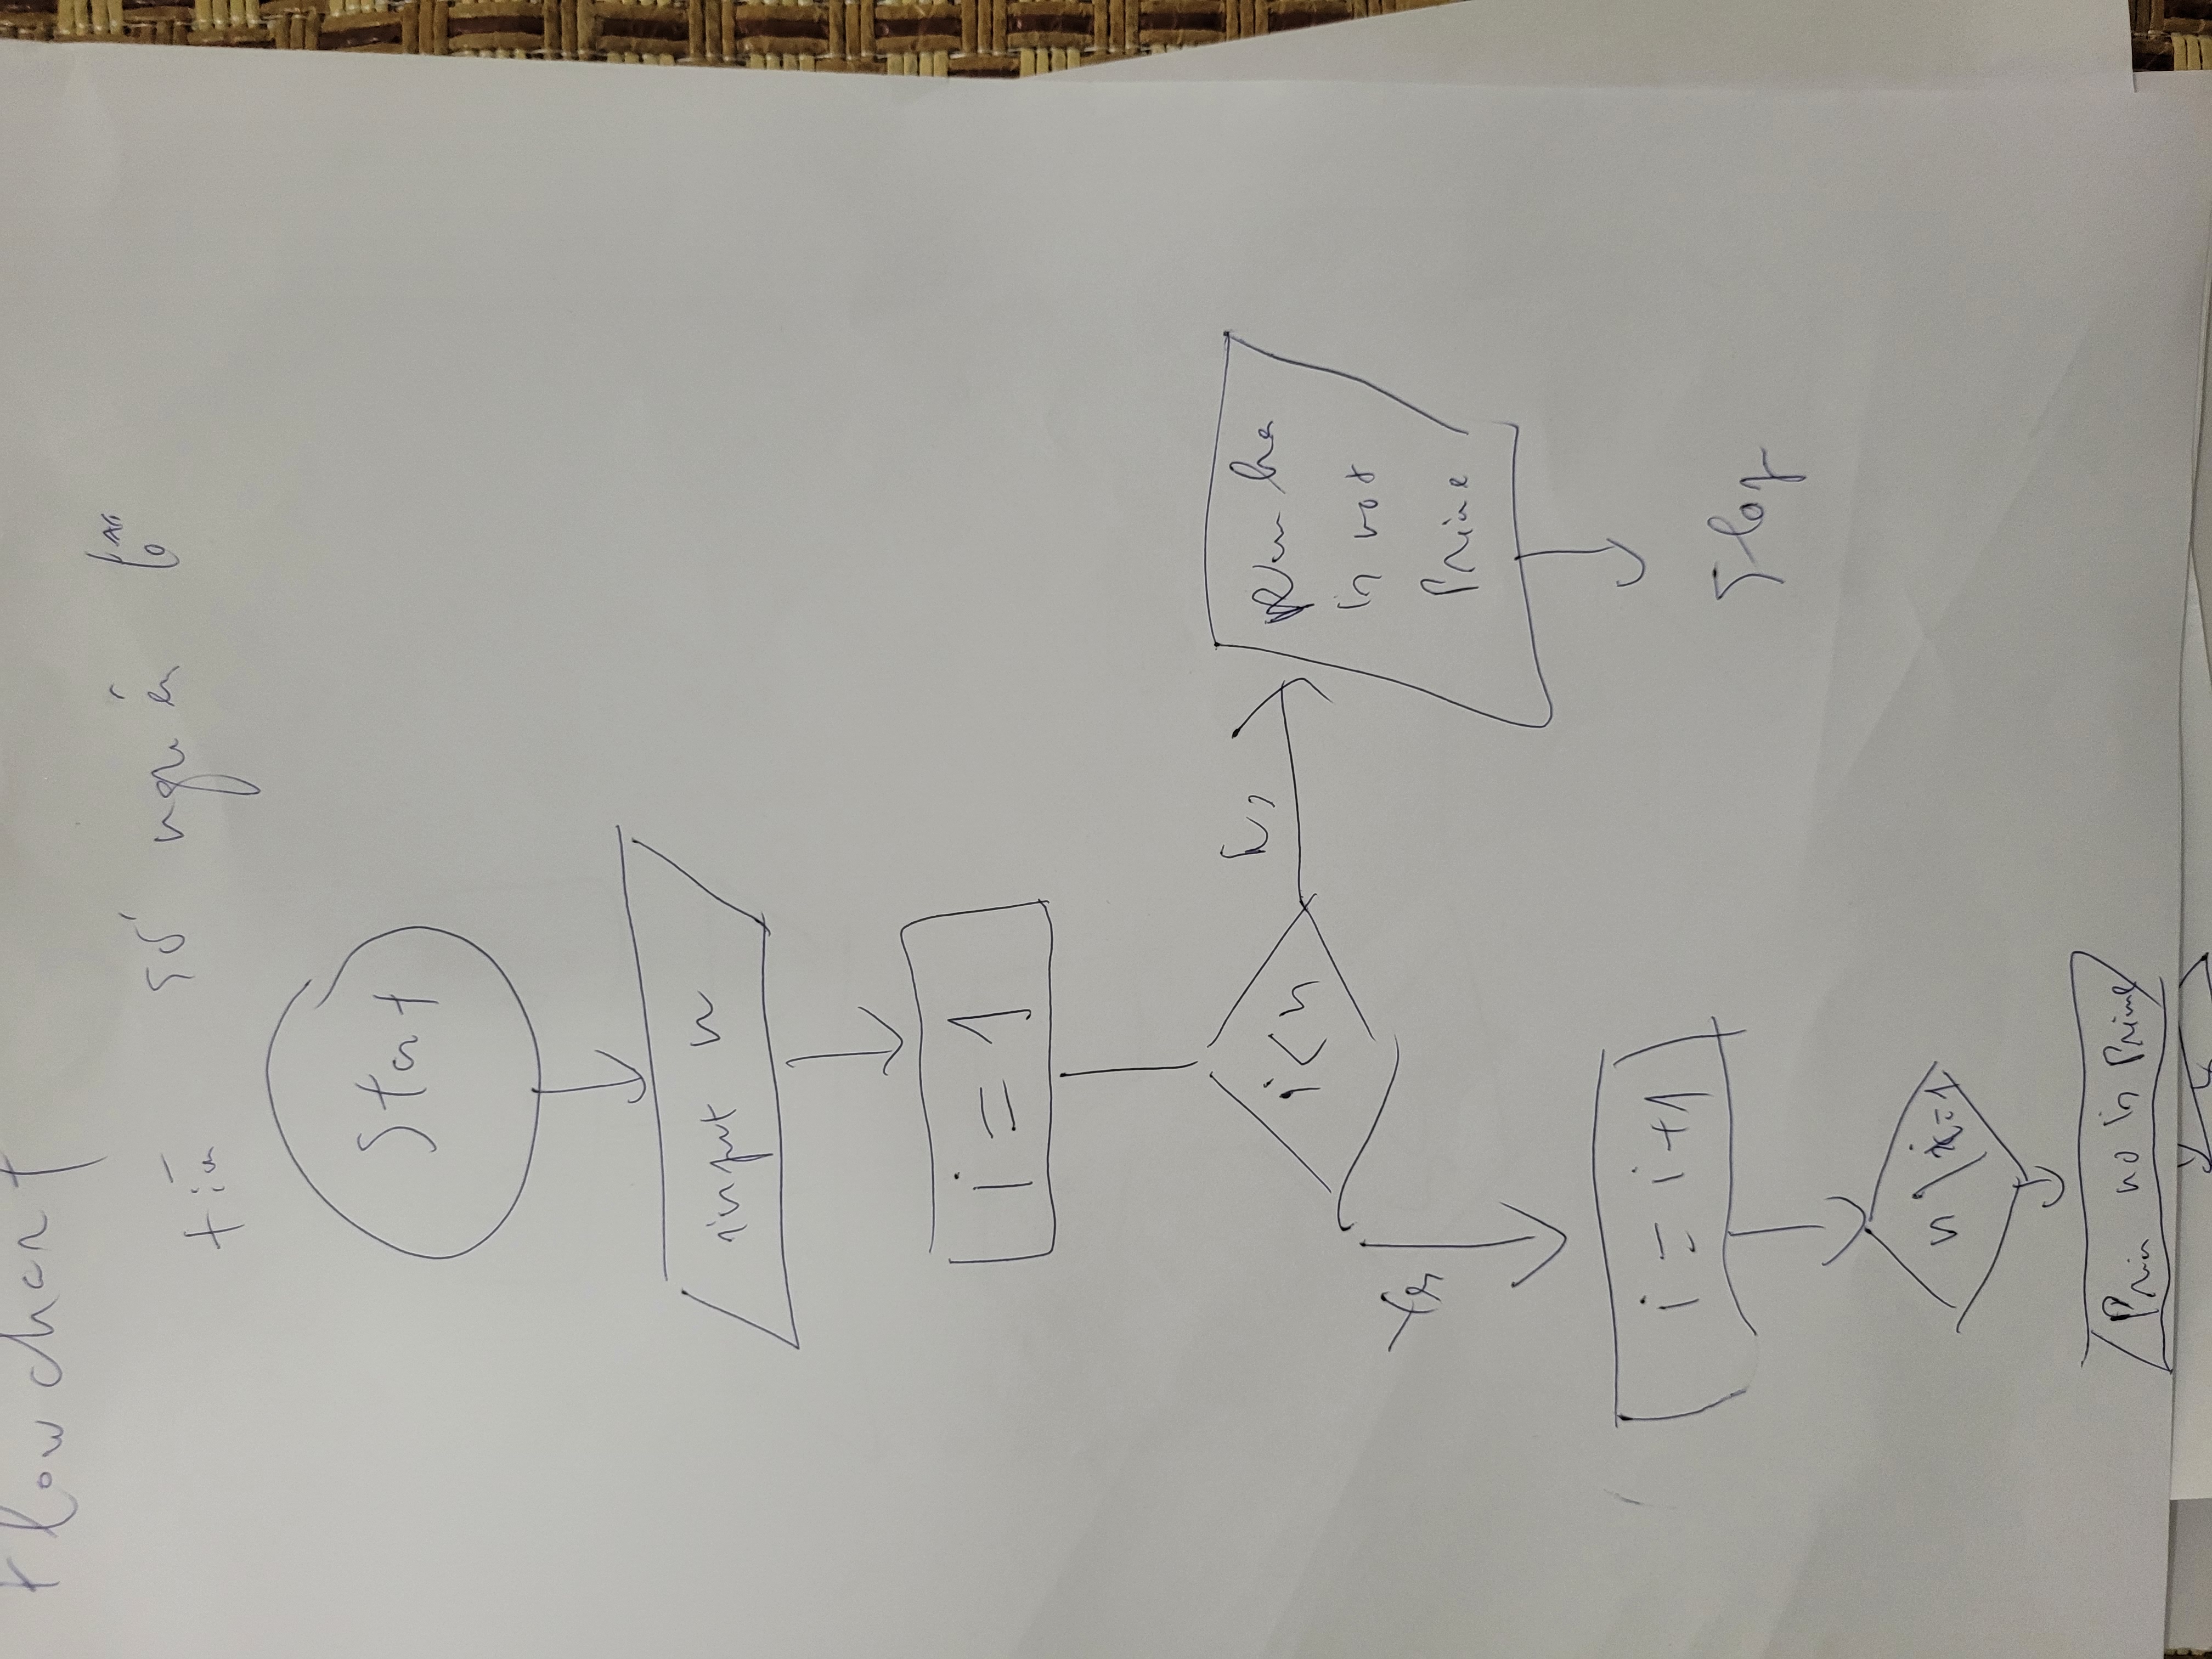 Flowchart
tìm số nguyên tố
Start
input n
i = 1
i < n
No
Yes
is not
Prime
i = i+1
Stop
n \ i = 1
Prin no is Prime